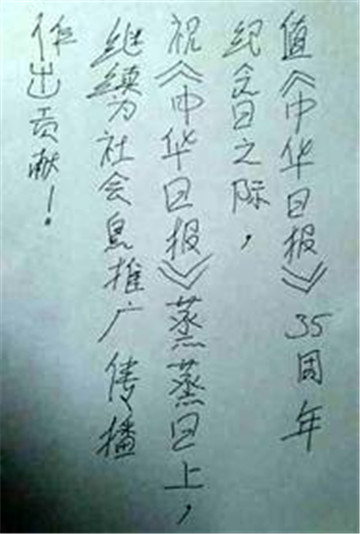 值《中华日报》35周年
纪念日之际，
祝《中华日报》蒸蒸日上，
继续为社会息推广传播
作出贡献！